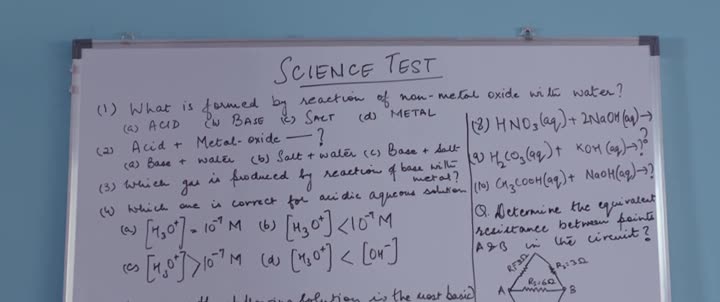 SCIENCE TEST
(1) What is formed by reaction of non-metal oxide with water?
(a) ACID (b) BASE (c) SALT (d) METAL
(2) Acid + Metal-oxide — ?
(a) Base + water (b) Salt + water (c) Base + salt
(3) Which gas is produced by reaction of base with metal?
(4) Which one is correct for acidic aqueous solution
(a) [H₃O⁺] = 10⁻⁷ M (b) [H₃O⁺] < 10⁻⁷ M
(c) [H₃O⁺] > 10⁻⁷ M (d) [H₃O⁺] < [OH⁻]
solution is the most basic
(8) HNO₃(aq) + 2NaOH(aq) → ?
(9) H₂CO₃(aq) + KOH(aq) → ?
(10) CH₃COOH(aq) + NaOH(aq) → ?
Q. Determine the equivalent
resistance between points
A & B in the circuit?
3Ω
3Ω
A R₃=6Ω B